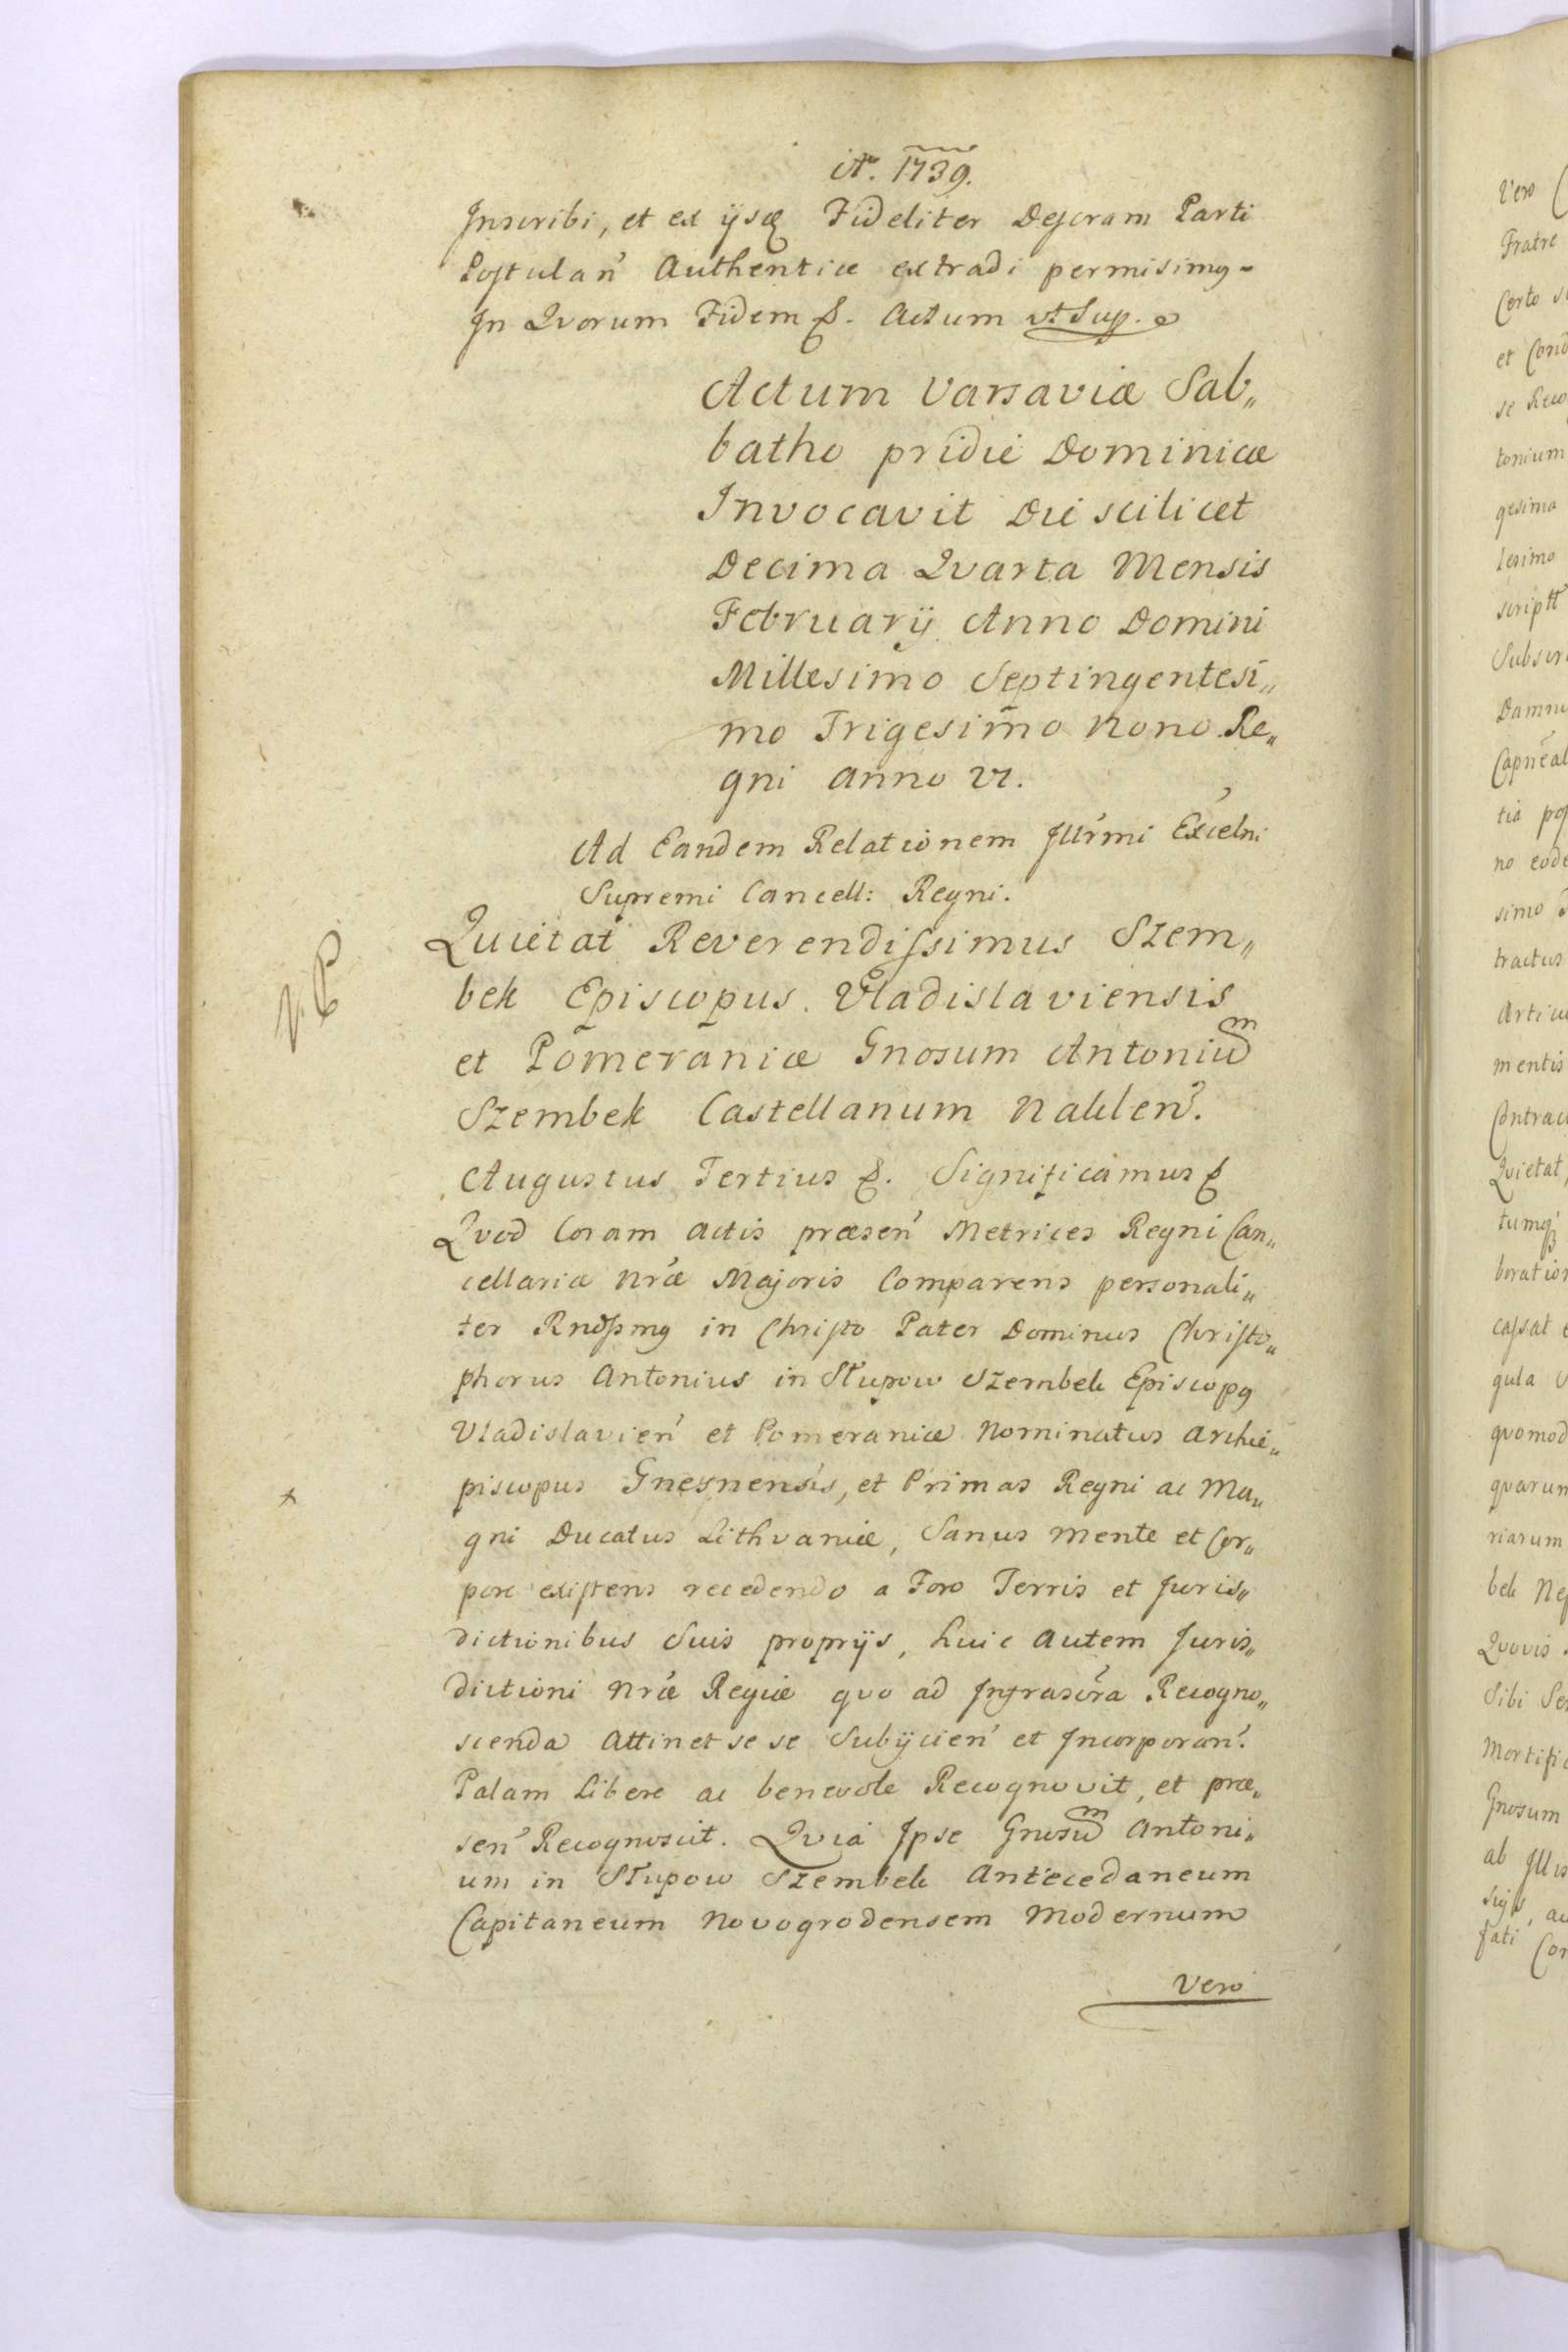 Aō. 1739.
Inscribi, et ex ijsq; Fideliter Descram Parti
Postulan̄ Authentice extradi permisimq
In Qvorum Fidem &. Actum vt Sup.
Actum Varsaviæ Sab„
batho pridie Dominicæ
Invocavit Die scilicet
Decima Qvarta Mensis
Februarij Anno Domini
Millesimo Septingentesi„
mo Trigesimo Nono Re„
gni anno VI.
Ad Eandem Relationem Illr̃mi Excelñi
Supremi Cancell: Regni.
Quietat Reverendissimus Szem„
bek Episcopus Vladislaviensis
et Pomeraniæ Gnosum Antoniũm
Szembek Castellanum Naklen̄.
Augustus Tertius &. Significamus &
Qvod Coram Actis præsen̄ Metrices Regni Can„
cellariæ Nræ Majoris Comparens personali„
ter Rndssmq in Christo Pater Dominus Christo„
phorus Antonius in Słupow Szembek Episcopq
Vladislavien̄ et Pomeraniæ Nominatus Archie„
piscopus Gnesnensis, et Primas Regni ac Ma„
gni Ducatus Lithvaniæ, Sanus mente et Cor„
pore existens recedendo a Foro Terris et Juris„
dictionibus Suis proprijs, huic autem Juris„
dictioni Nræ Regiæ quo ad Infrascr̃a Recogno„
scenda Attinet se se Subijcien̄ et Incorporan̄.
Palam Libere ac benevole Recognovit, et præ„
sen̄ Recognoscit. Qvia Ipse Gnosũm Antoni„
um in Słupow Szembek Antecedaneum
Capitaneum Novogrodensem Modernum
Vero